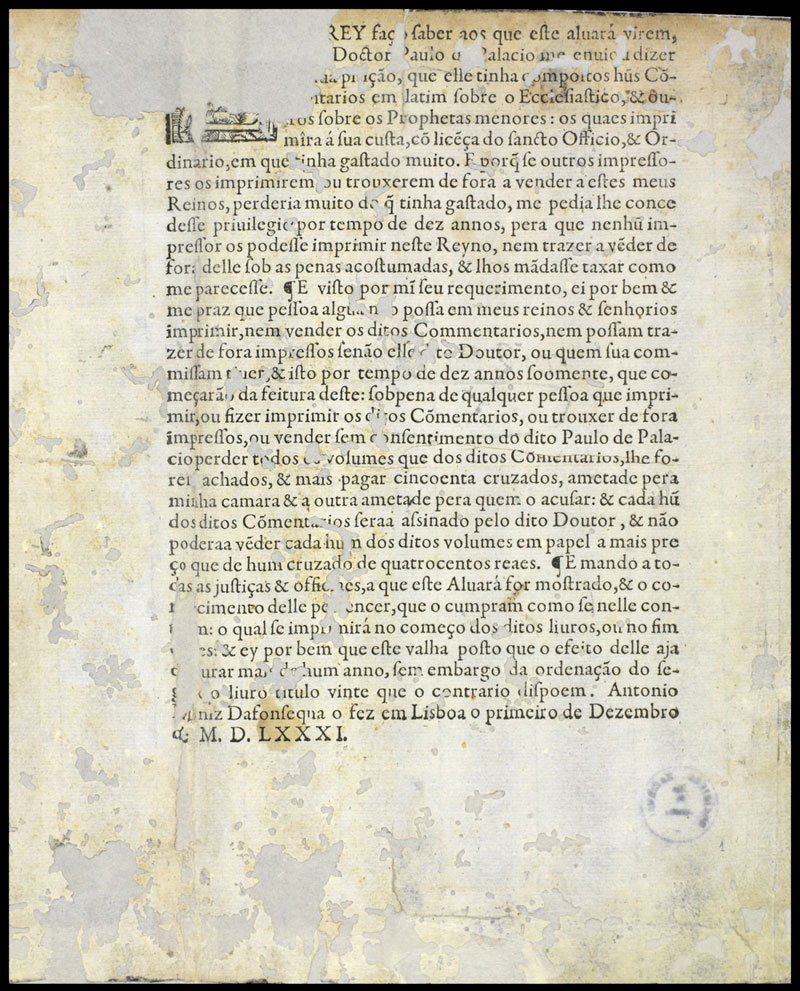 REY faço saber aos que este aluará virem,
Doctor Paulo de Palacio me enuiou dizer
que elle tinha compostos hũs Cõ-
ntarios em latim sobre o Ecclesiastico, & ou-
tros sobre os Prophetas menores: os quaes impri
mîra á sua custa, cõ licẽça do sancto Officio, & Or-
dinario, em que tinha gastado muito. E porq̃ se outros impresso-
res os imprimirem, ou trouxerem de fora a vender a estes meus
Reinos, perderia muito do q̃ tinha gastado, me pedia lhe conce
desse priuilegio por tempo de dez annos, pera que nenhũ im-
pressor os podesse imprimir neste Reyno, nem trazer a vẽder de
fora delle sob as penas acostumadas, & lhos mãdasse taxar como
me parecesse. ¶ E visto por mĩ seu requerimento, ei por bem &
me praz que pessoa algũa não possa em meus reinos & senhorios
imprimir, nem vender os ditos Commentarios, nem possam tra-
zer de fora impressos senão elle dito Doutor, ou quem sua com-
missam tiuer, & isto por tempo de dez annos soomente, que co-
meçarão da feitura deste: sobpena de qualquer pessoa que impri-
mir, ou fizer imprimir os ditos Cõmentarios, ou trouxer de fora
impressos, ou vender sem consentimento do dito Paulo de Pala-
cio perder todos os volumes que dos ditos Cõmentarios, lhe fo-
rem achados, & mais pagar cincoenta cruzados, ametade pera
minha camara & a outra ametade pera quem o acusar: & cada hũ
dos ditos Cõmentarios seraa assinado pelo dito Doutor, & não
poderaa vẽder cada hum dos ditos volumes em papel a mais pre
ço que de hum cruzado de quatrocentos reaes. ¶ E mando a to-
das as justiças & officiaes, a que este Aluará for mostrado, & o co-
nhecimento delle pertencer, que o cumpram como se nelle con-
tem: o qual se imprimirá no começo dos ditos liuros, ou no fim
& ey por bem que este valha posto que o efeito delle aja
durar mais de hum anno, sem embargo da ordenação do se-
gundo liuro titulo vinte que o contrario dispoem. Antonio
Moniz Dafonsequa o fez em Lisboa o primeiro de Dezembro
de M. D. LXXXI.